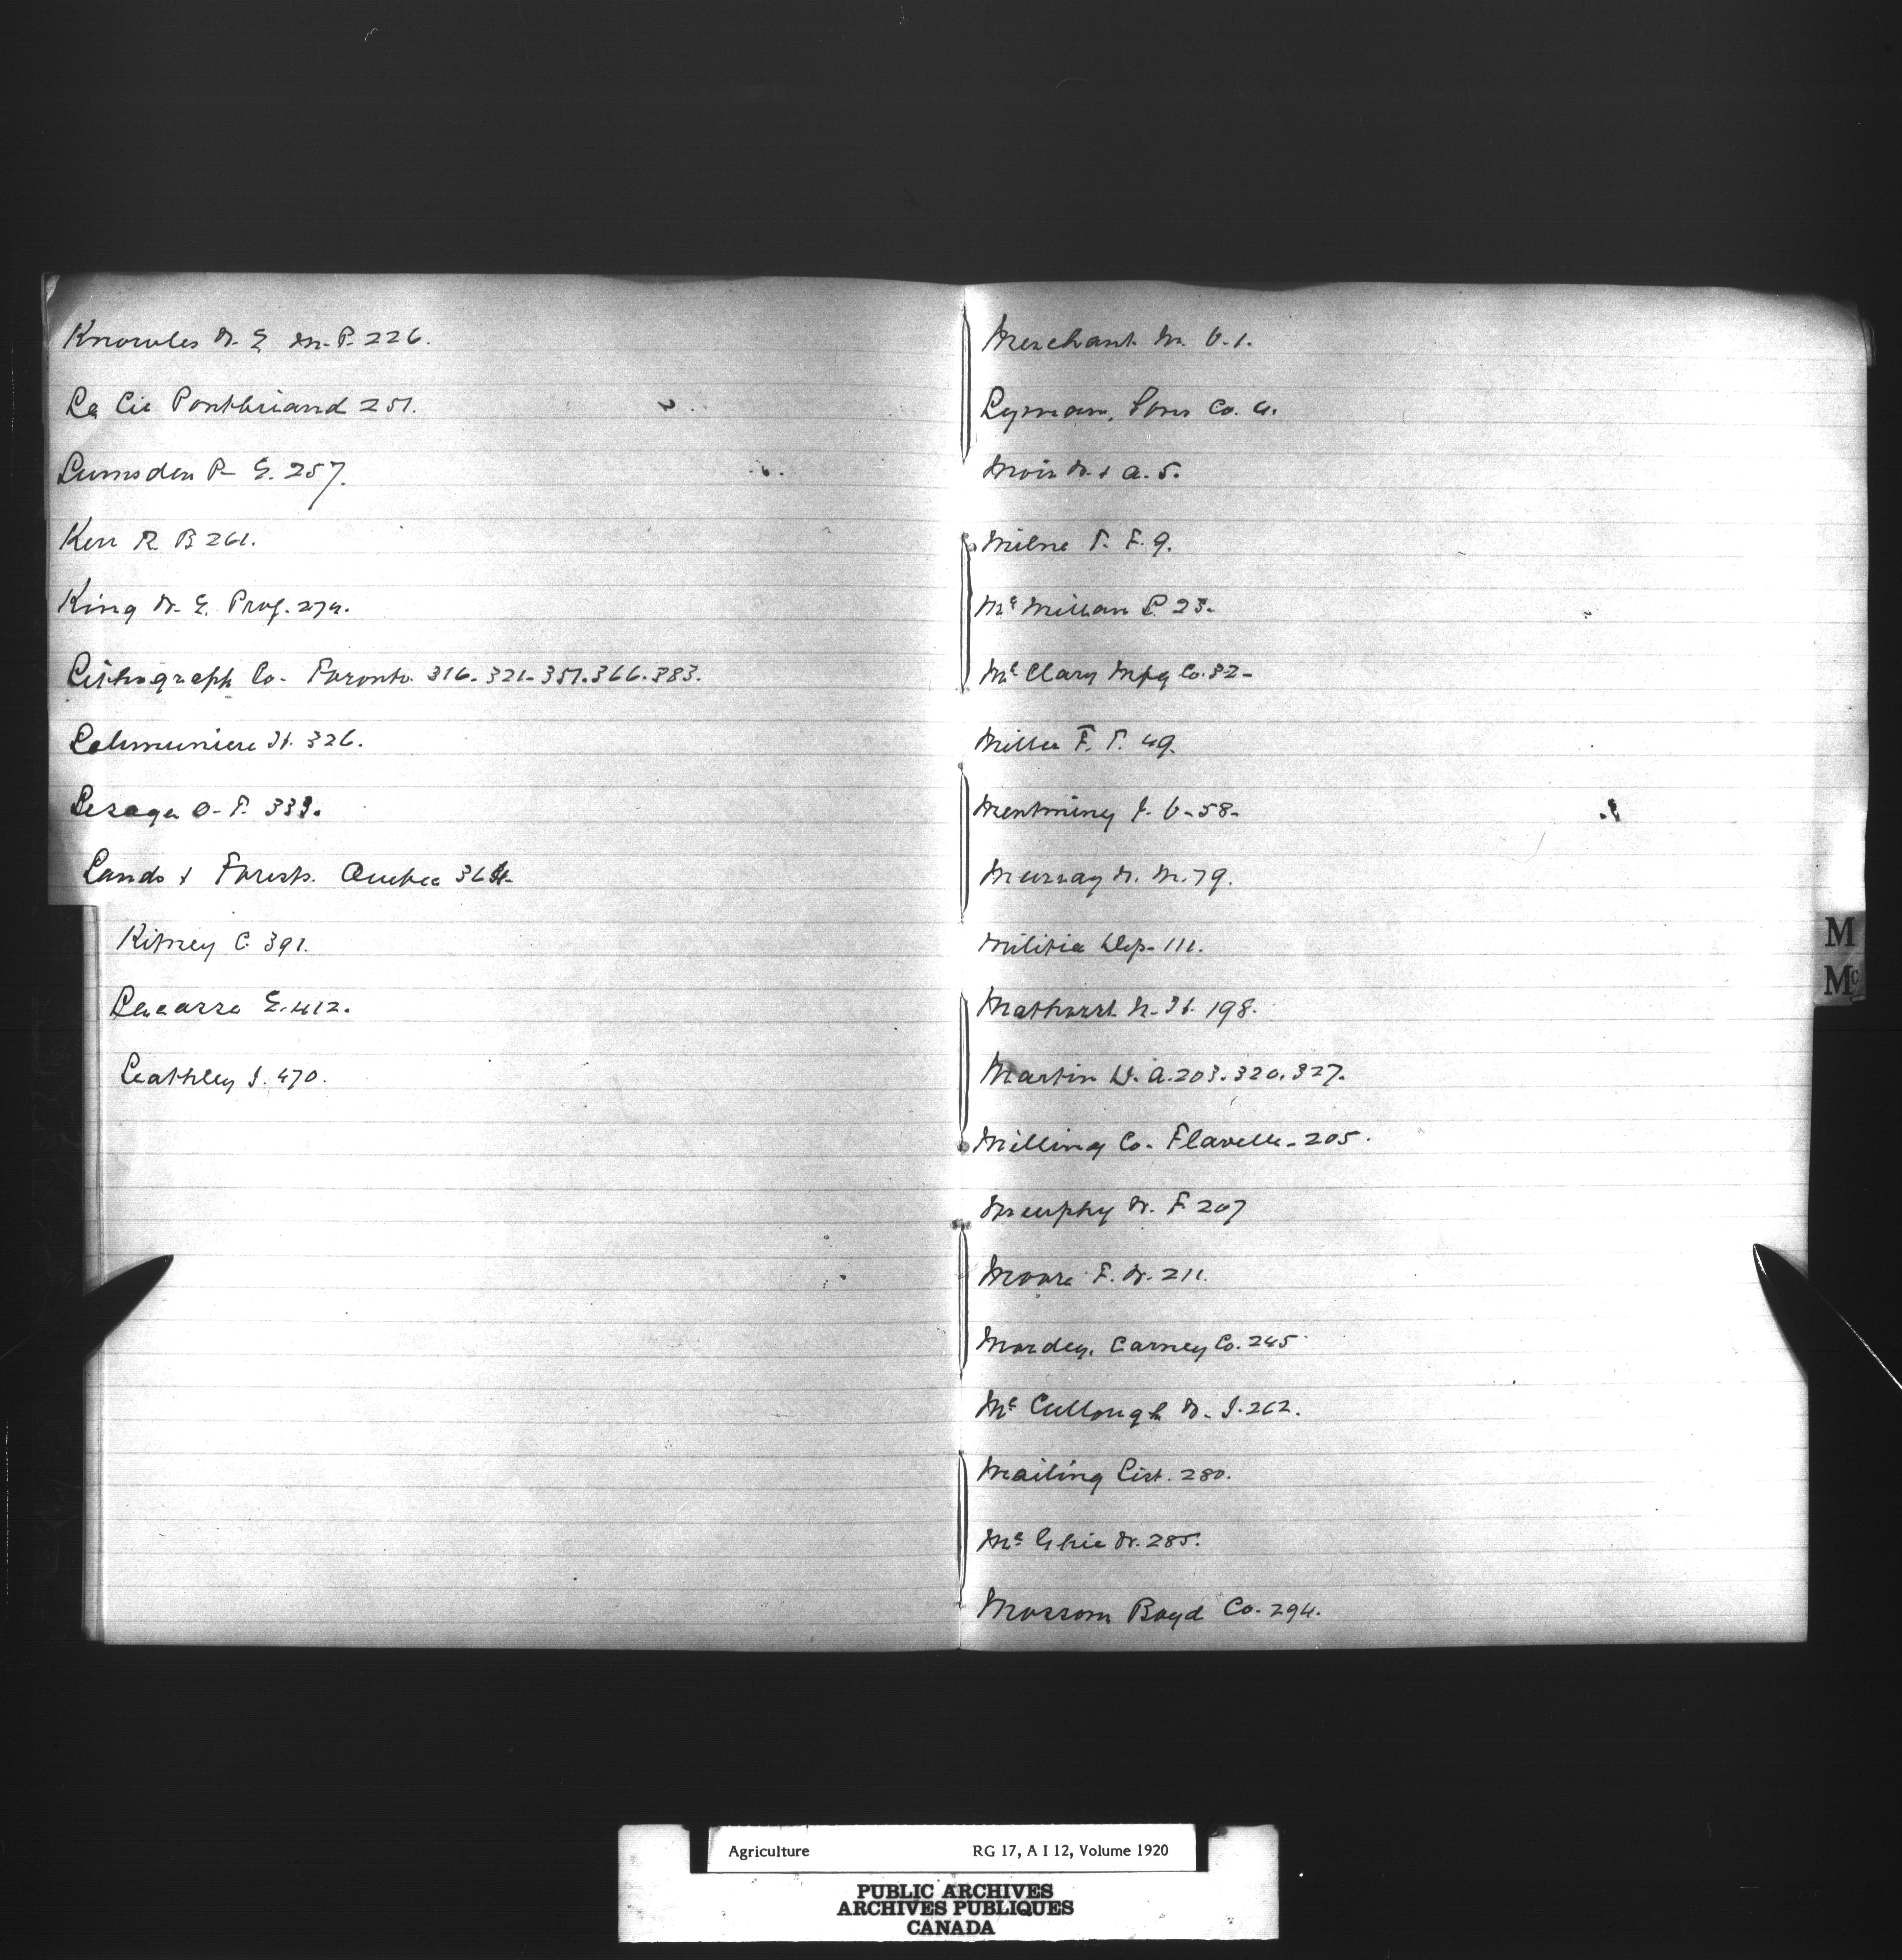 Knowles W. E. M.P. 226.
La Cie Pontbriand 251.
Lumsden P- E. 257.
Kerr R B 261.
King W. E. Prof. 274.
Lithograph Co- Toronto. 316. 321- 351. 366. 383.
Lalimuniere H. 326.
Lesage O- P. 333.
Lands & Forests. Quebec 364-
Kitney C. 391.
Lacasse E. 412.
Leathley J. 470.
Merchant M. V. 1.
Lyman, Sons Co. 4.
Moir W. & A. 5.
Milne T. F. 9.
Mc Millan L. 23-
Mc Clary Mfg Co. 32-
Miller F. T. 49.
J. V- 58-
Murray W. M. 79.
Militia Dep- 111.
H. 198.
Martin W. A. 203. 320. 327.
Milling Co- Flavelle- 205.
Murphy W. F 207
Moore F. W. 211.
Mordey, Carney Co. 245
Mc Cullough W. J. 262.
Mailing List. 280.
Mc Ghie W. 285.
Mossom Boyd Co. 294.
M
Mc
Agriculture RG 17, A I 12, Volume 1920
PUBLIC ARCHIVES
ARCHIVES PUBLIQUES
CANADA